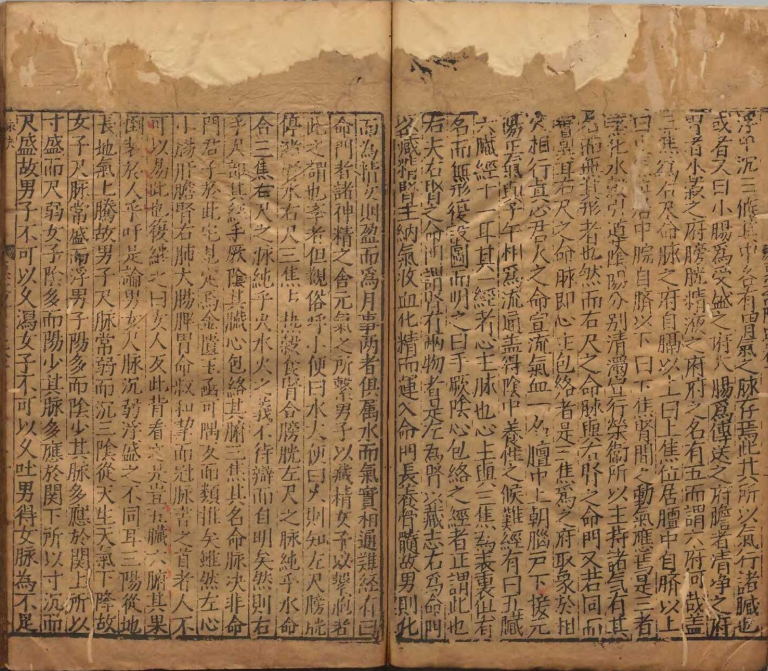 浮中沉三候其中各有胃氣之脉
或者又曰小腸為受盛之府大腸為傳送之府膽者清淨之府
胃者水穀之府膀胱津液之府府之名有五而謂六府可哉蓋
三焦為右尺命脉之府自膈以上曰上焦位居膻中自臍以上
曰中焦位居中脘自臍以下曰下焦腎間之動氣應焉是三者
化水穀引導陰陽分別清濁宣行榮衛所以主持諸氣有其
名而無其形者也然而右尺之命脉與右腎之命門又若同而
實異耳右尺之命脉即心主包絡者是三焦為之府取象於相
火相行眞心君火之命宣流氣血一名膻中上朝腦戸下接元
陽正氣與子午相為流通蓋得陰中養性之候難經有曰五臟
六臟經十一耳其一經者心主脉也心主與三焦為表裏俱有
名而無形後
右夫右腎之命門謂腎有兩物者是左為腎以藏志右為命門
以藏精腎主納氣收血化精而運入命門長養骨髓故男則化
而為精女則盈而為月事两者俱属水而氣實相通難經有曰
命門者諸神精之舍元氣之所繫男子以藏精女子以繫胞者
此之謂也李者但觀俗呼小便曰水大便曰火則知左尺膀胱
停瀦溺水右尺三焦上熟穀食腎合膀胱左尺之脉純乎水命
合三焦右尺之脉純乎火水火之義不待辯而自明矣然則右
乎尺部其經手厥陰其臟心包絡其腑三焦其名命脉决非命
門君子於此宅見定焉金匱玉函可隅反而類推矣雖然左心
小腸肝膽腎右肺大腸脾胃命叔和挚而冠脉書之首者人不
可以易此也後繼之曰女人反此背看之尤豈五臟六腑其果
倒装於人乎吁是論男女尺脉沉弱浮盛之不同耳三陽從地
長地氣上騰故男子尺脉常弱而沉三陰從天生天氣下降故
女子尺脉常盛而浮男子陽多而陰少其脉多應於關上所以
寸盛而尺弱女子陰多而陽少其脉多應於関下所以寸沉而
尺盛故男子不可以久瀉女子不可以久吐男得女脉為不足